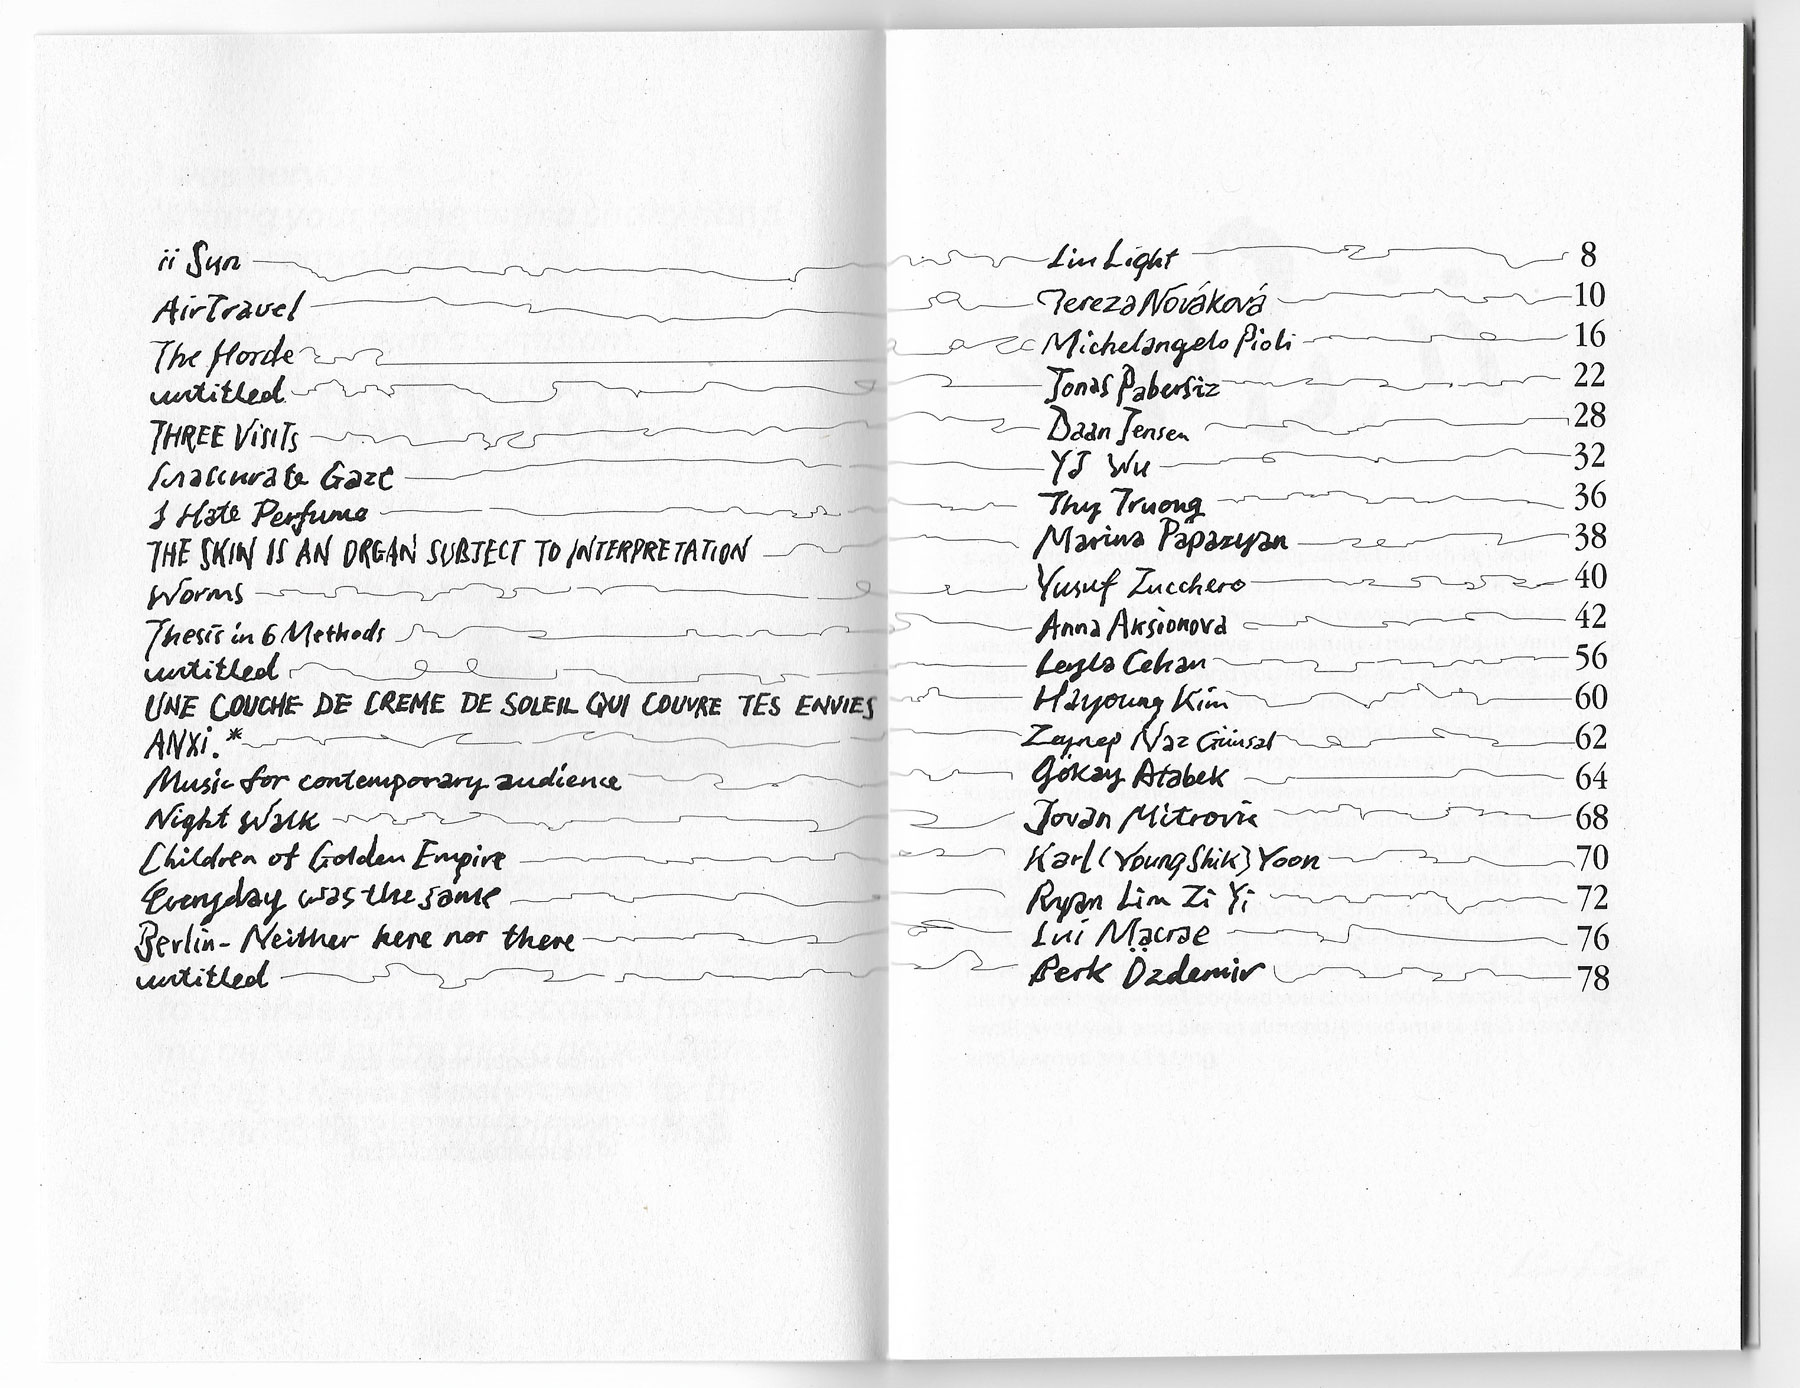 ii Sun Lin Light 8
AirTravel Tereza Nováková 10
The Horde Michelangelo Pioli 16
untitled Jonas Pabersiz 22
THREE VISITS Daan Jensen 28
Inaccurate Gaze YJ Wu 32
I Hate Perfume Thy Truong 36
THE SKIN IS AN ORGAN SUBJECT TO INTERPRETATION Marina Papazyan 38
Worms Yusuf Zucchero 40
Thesis in 6 Methods Anna Aksionova 42
untitled Leyla Cehan 56
UNE COUCHE DE CREME DE SOLEIL QUI COUVRE TES ENVIES Hayoung Kim 60
ANXi.* Zeynep Naz Günsal 62
Music for contemporary audience Gökay Atabek 64
Night Walk Jovan Mitrovic 68
Children of Golden Empire Karl (YoungShik) Yoon 70
Everyday was the same Ryan Lim Zi Yi 72
Berlin- Neither here nor there Lui Macrae 76
untitled Berk Özdemir 78